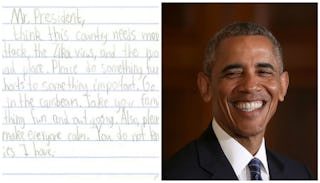 Mr. President,
I think this country needs mor
attack, the Zika virus, and the
place. Please do something
to something important.
in the caribbean. Take your
thing fun and out going. Also, plea
make everyone calm. You do not
its I have.